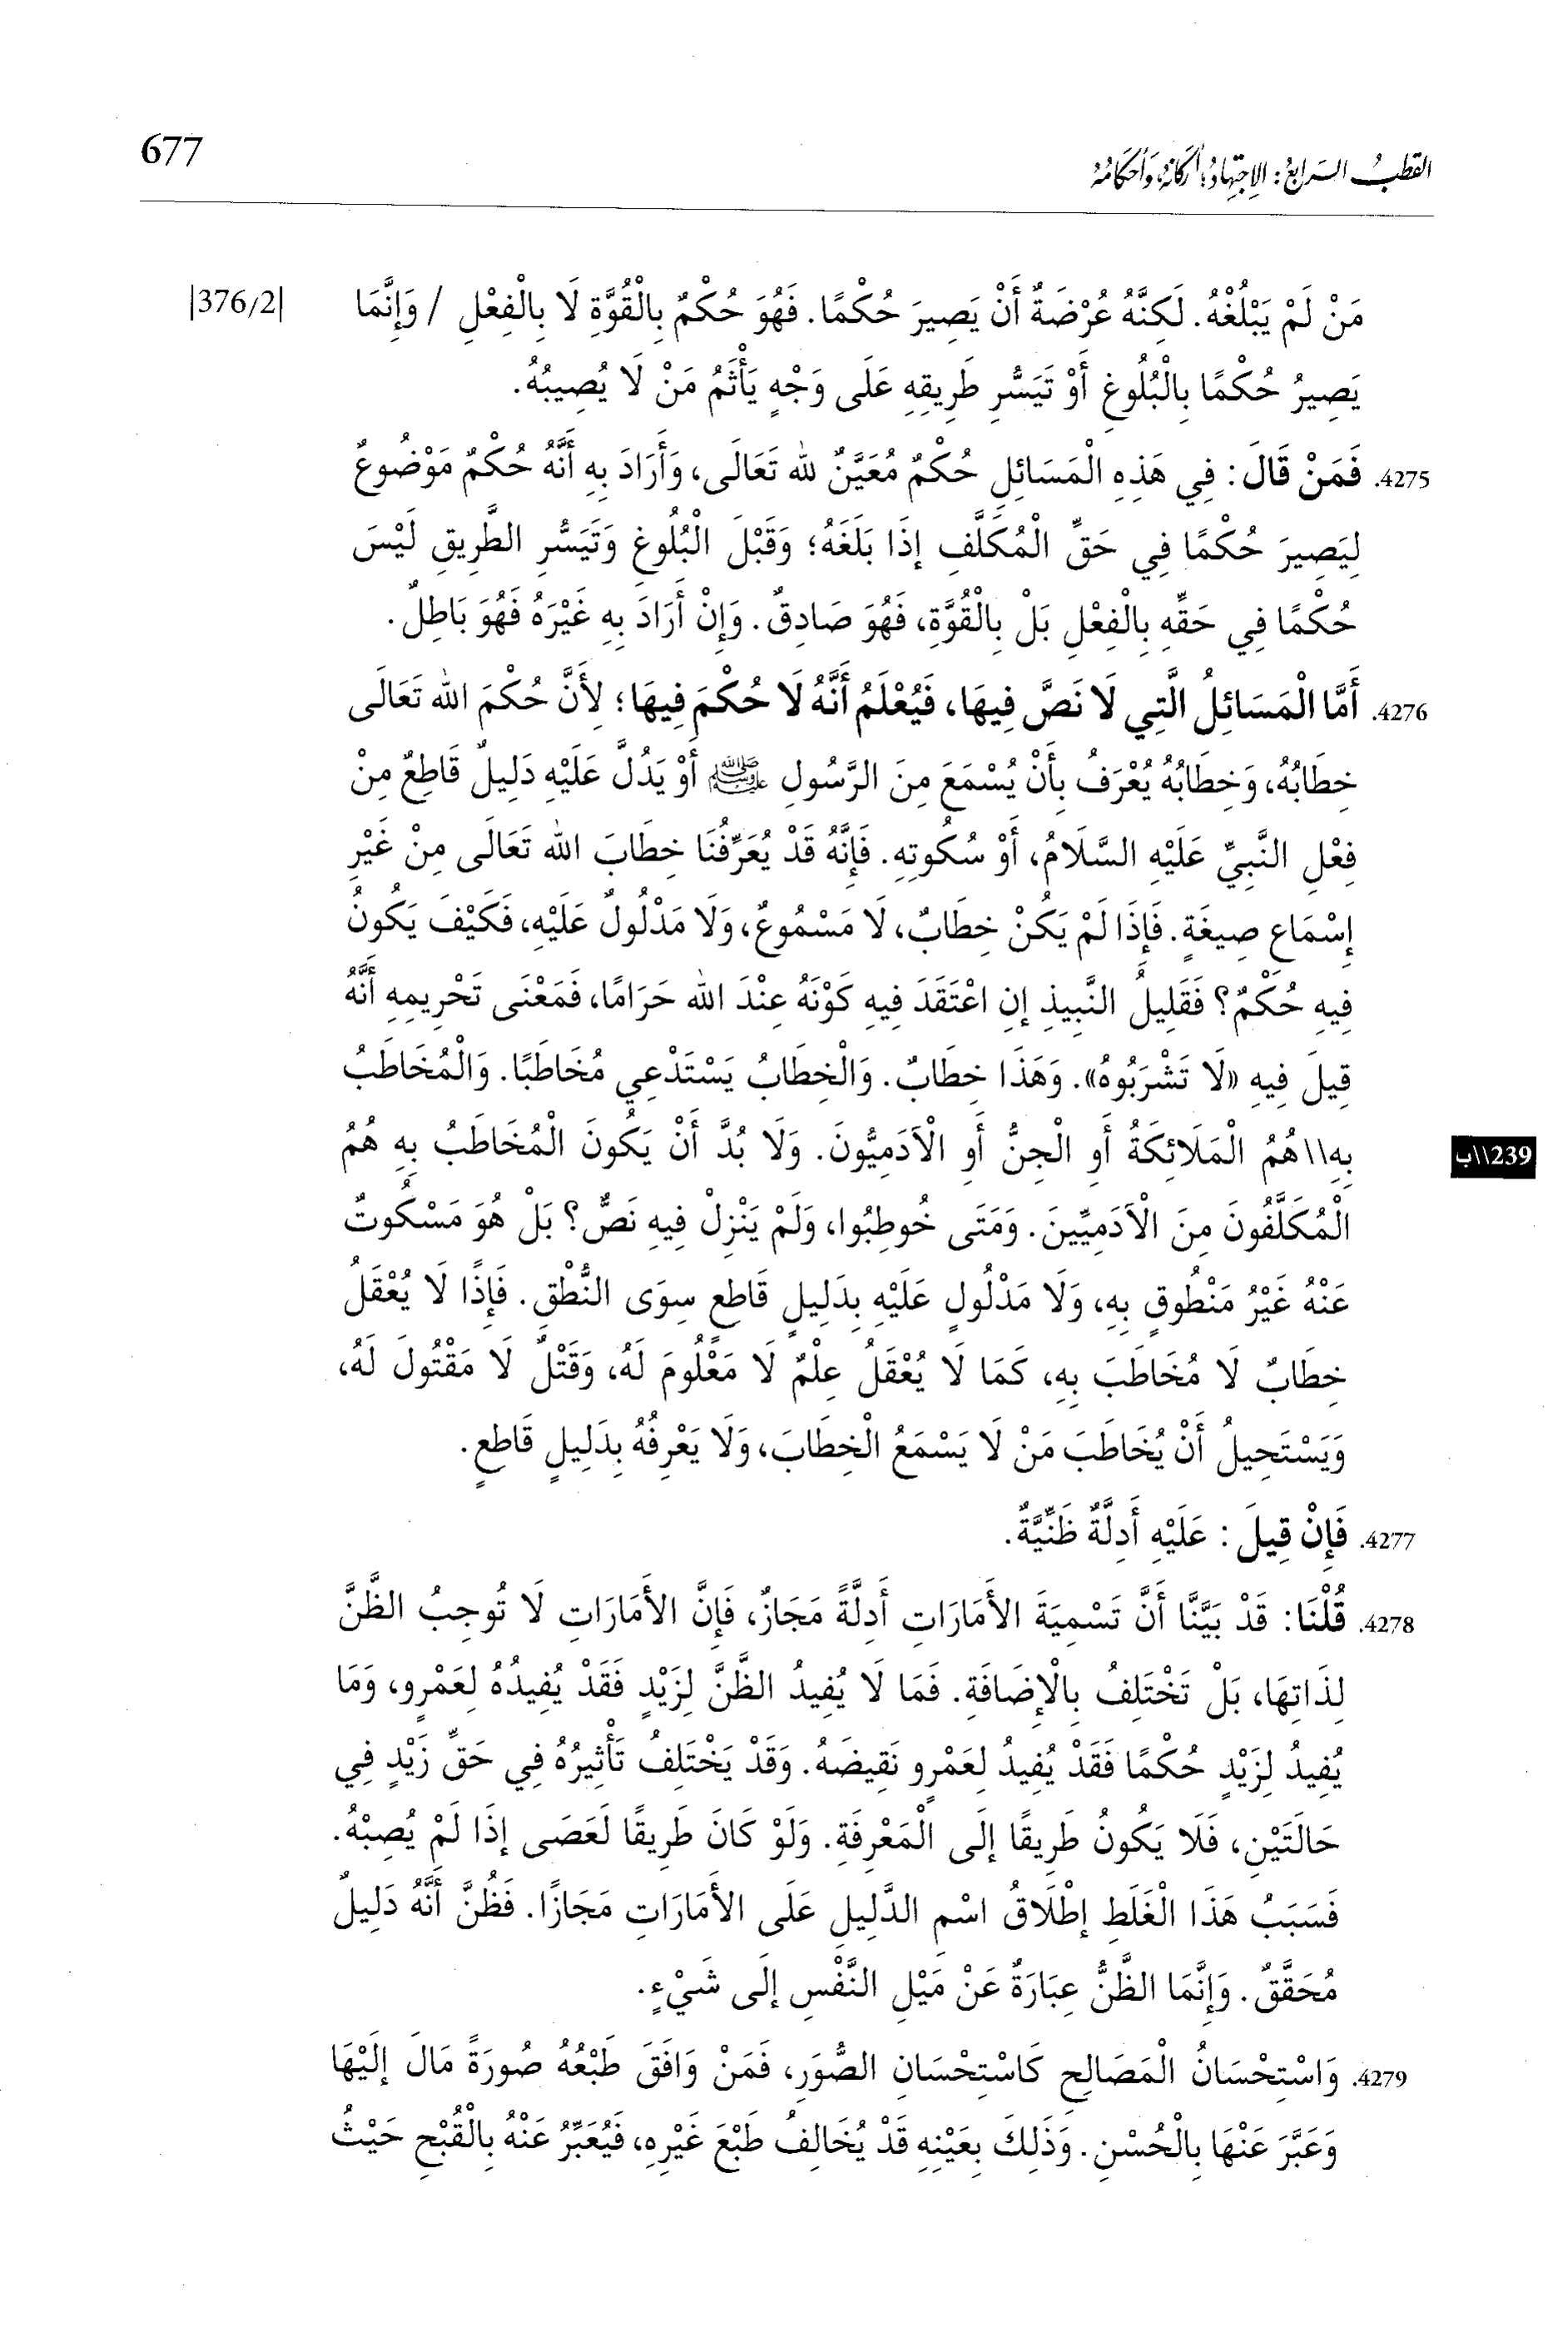 القطب الرابع: الاجتهاد؛ أركانه وأحكامه
677
مَنْ لَمْ يَبْلُغْهُ. لَكِنَّهُ عُرْضَةٌ أَنْ يَصِيرَ حُكْمًا. فَهُوَ حُكْمٌ بِالْقُوَّةِ لَا بِالْفِعْلِ / وَإِنَّمَا |376/2|
يَصِيرُ حُكْمًا بِالْبُلُوغِ أَوْ تَيَسُّرِ طَرِيقِهِ عَلَى وَجْهٍ يَأْثَمُ مَنْ لَا يُصِيبُهُ.
4275. فَمَنْ قَالَ: فِي هَذِهِ الْمَسَائِلِ حُكْمٌ مُعَيَّنٌ لله تَعَالَى، وَأَرَادَ بِهِ أَنَّهُ حُكْمٌ مَوْضُوعٌ
لِيَصِيرَ حُكْمًا فِي حَقِّ الْمُكَلَّفِ إِذَا بَلَغَهُ؛ وَقَبْلَ الْبُلُوغِ وَتَيَسُّرِ الطَّرِيقِ لَيْسَ
حُكْمًا فِي حَقِّهِ بِالْفِعْلِ بَلْ بِالْقُوَّةِ، فَهُوَ صَادِقٌ. وَإِنْ أَرَادَ بِهِ غَيْرَهُ فَهُوَ بَاطِلٌ.
4276. أَمَّا الْمَسَائِلُ الَّتِي لَا نَصَّ فِيهَا، فَيُعْلَمُ أَنَّهُ لَا حُكْمَ فِيهَا؛ لِأَنَّ حُكْمَ الله تَعَالَى
خِطَابُهُ، وَخِطَابُهُ يُعْرَفُ بِأَنْ يُسْمَعَ مِنَ الرَّسُولِ ﷺ أَوْ يَدُلَّ عَلَيْهِ دَلِيلٌ قَاطِعٌ مِنْ
فِعْلِ النَّبِيِّ عَلَيْهِ السَّلَامُ، أَوْ سُكُوتِهِ. فَإِنَّهُ قَدْ يُعَرِّفُنَا خِطَابَ الله تَعَالَى مِنْ غَيْرِ
إِسْمَاعِ صِيغَةٍ. فَإِذَا لَمْ يَكُنْ خِطَابٌ، لَا مَسْمُوعٌ، وَلَا مَدْلُولٌ عَلَيْهِ، فَكَيْفَ يَكُونُ
فِيهِ حُكْمٌ؟ فَقَلِيلُ النَّبِيذِ إِنِ اعْتَقَدَ فِيهِ كَوْنَهُ عِنْدَ الله حَرَامًا، فَمَعْنَى تَحْرِيمِهِ أَنَّهُ
قِيلَ فِيهِ «لَا تَشْرَبُوهُ». وَهَذَا خِطَابٌ. وَالْخِطَابُ يَسْتَدْعِي مُخَاطَبًا. وَالْمُخَاطَبُ
بِهِ\\هُمُ الْمَلَائِكَةُ أَوِ الْجِنُّ أَوِ الْآدَمِيُّونَ. وَلَا بُدَّ أَنْ يَكُونَ الْمُخَاطَبُ بِهِ هُمُ 239\\ب
الْمُكَلَّفُونَ مِنَ الْآدَمِيِّينَ. وَمَتَى خُوطِبُوا، وَلَمْ يَنْزِلْ فِيهِ نَصٌّ؟ بَلْ هُوَ مَسْكُوتٌ
عَنْهُ غَيْرُ مَنْطُوقٍ بِهِ، وَلَا مَدْلُولٍ عَلَيْهِ بِدَلِيلٍ قَاطِعٍ سِوَى النُّطْقِ. فَإِذًا لَا يُعْقَلُ
خِطَابٌ لَا مُخَاطَبَ بِهِ، كَمَا لَا يُعْقَلُ عِلْمٌ لَا مَعْلُومَ لَهُ، وَقَتْلٌ لَا مَقْتُولَ لَهُ،
وَيَسْتَحِيلُ أَنْ يُخَاطَبَ مَنْ لَا يَسْمَعُ الْخِطَابَ، وَلَا يَعْرِفُهُ بِدَلِيلٍ قَاطِعٍ.
4277. فَإِنْ قِيلَ: عَلَيْهِ أَدِلَّةٌ ظَنِّيَّةٌ.
4278. قُلْنَا: قَدْ بَيَّنَّا أَنَّ تَسْمِيَةَ الأَمَارَاتِ أَدِلَّةً مَجَازٌ، فَإِنَّ الأَمَارَاتِ لَا تُوجِبُ الظَّنَّ
لِذَاتِهَا، بَلْ تَخْتَلِفُ بِالْإِضَافَةِ. فَمَا لَا يُفِيدُ الظَّنَّ لِزَيْدٍ فَقَدْ يُفِيدُهُ لِعَمْرٍو، وَمَا
يُفِيدُ لِزَيْدٍ حُكْمًا فَقَدْ يُفِيدُ لِعَمْرٍو نَقِيضَهُ. وَقَدْ يَخْتَلِفُ تَأْثِيرُهُ فِي حَقِّ زَيْدٍ فِي
حَالَتَيْنِ، فَلَا يَكُونُ طَرِيقًا إِلَى الْمَعْرِفَةِ. وَلَوْ كَانَ طَرِيقًا لَعَصَى إِذَا لَمْ يُصِبْهُ.
فَسَبَبُ هَذَا الْغَلَطِ إِطْلَاقُ اسْمِ الدَّلِيلِ عَلَى الأَمَارَاتِ مَجَازًا. فَظُنَّ أَنَّهُ دَلِيلٌ
مُحَقَّقٌ. وَإِنَّمَا الظَّنُّ عِبَارَةٌ عَنْ مَيْلِ النَّفْسِ إِلَى شَيْءٍ.
4279. وَاسْتِحْسَانُ الْمَصَالِحِ كَاسْتِحْسَانِ الصُّوَرِ، فَمَنْ وَافَقَ طَبْعُهُ صُورَةً مَالَ إِلَيْهَا
وَعَبَّرَ عَنْهَا بِالْحُسْنِ. وَذَلِكَ بِعَيْنِهِ قَدْ يُخَالِفُ طَبْعَ غَيْرِهِ، فَيُعَبِّرُ عَنْهُ بِالْقُبْحِ حَيْثُ